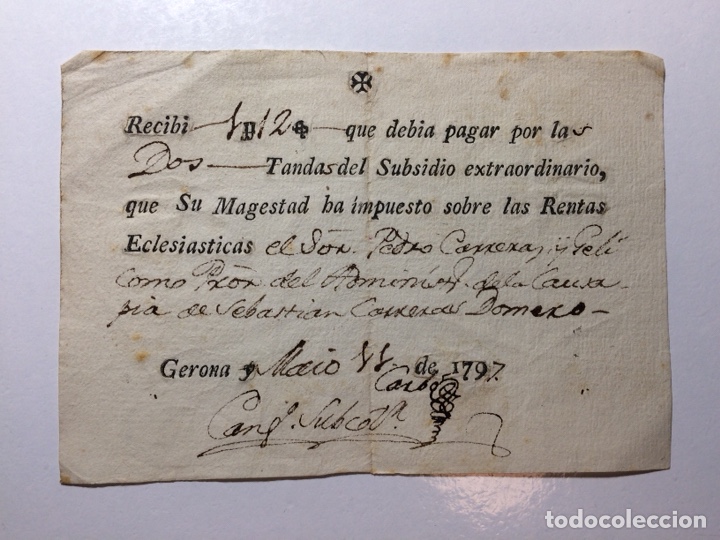 ✠
Recibi 1₶12ß que debia pagar por las
Dos Tandas del Subsidio extraordinario,
que Su Magestad ha impuesto sobre las Rentas
Eclesiasticas el Sör. Pedro Carreras, y Geli
como Prör. del Administ.r de la Causa
pia de Sebastian Carreras Domero
Gerona y Maio 11 de 1797.
Carbo
Cang.e Subcol.r
todocoleccion
todocoleccion.net